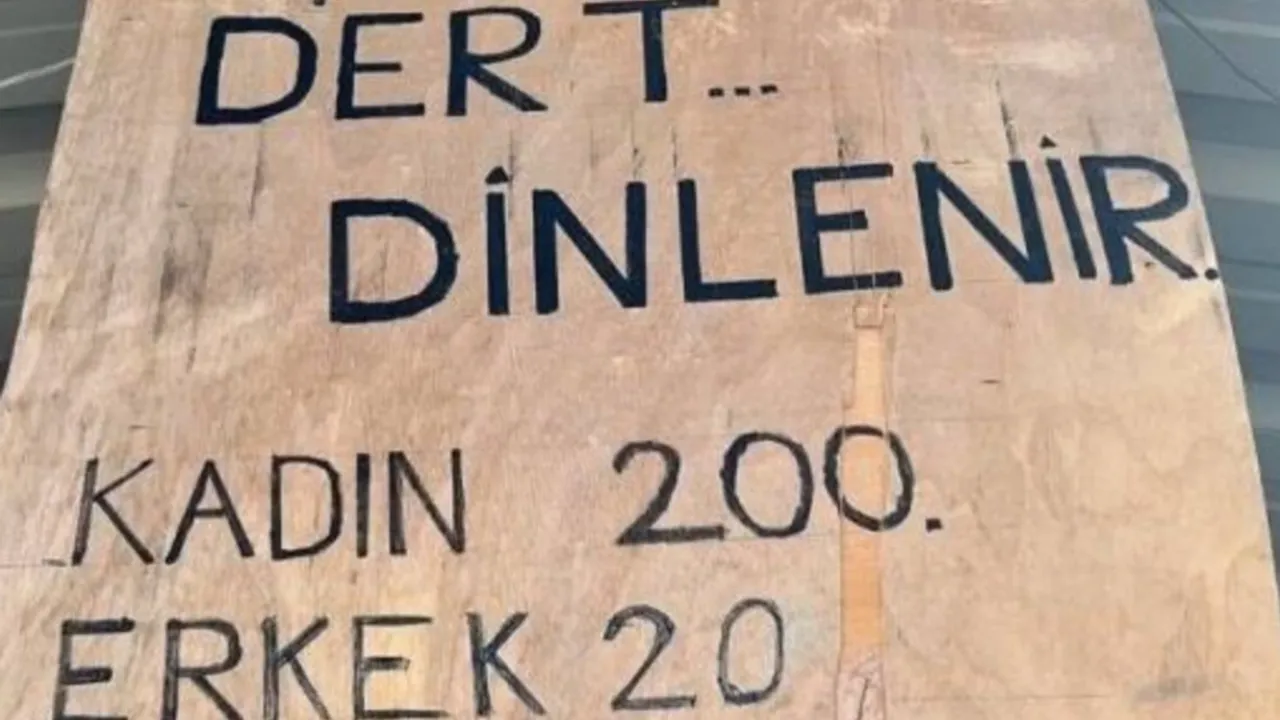 DERT...
DİNLENİR.
KADIN 200.
ERKEK 20